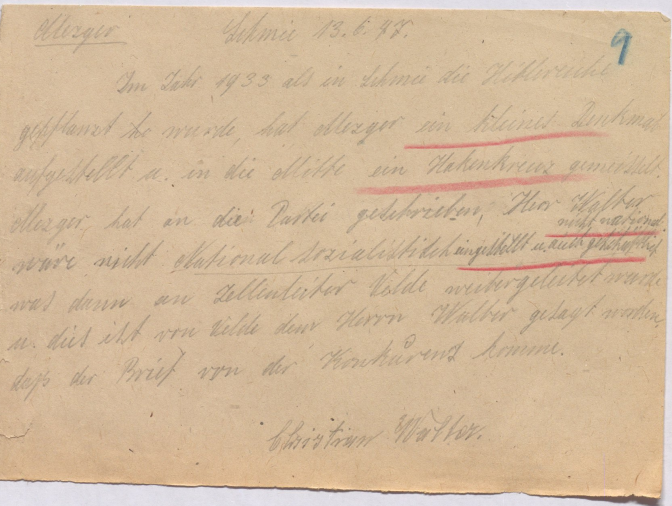 Mezger Schmie 13.6.47. 9
Im Jahr 1933 als in Schmie die Hitlereiche
gepflanzt wurde, hat Mezger ein kleines Denkmal
aufgestellt u. in die Mitte ein Hakenkreuz gemeisselt.
Mezger, hat an die Partei geschrieben, Herr Walter
wäre nicht National sozialistisch eingestellt u.
was dann an Zellenleiter weitergeleitet wurde
u. dies ist von dem Herrn Walter gesagt worden,
daß der Brief von der Konkurenz komme.
Christian Walter.